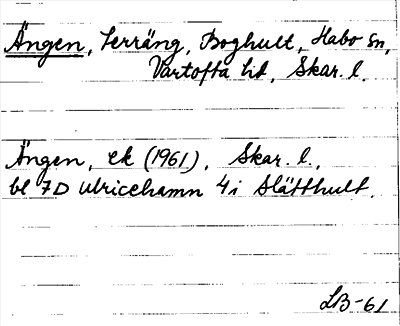 Ängen, Terräng, Boghult, Habo sn,
Vartofta hd, Skar. l.
Ängen, ek (1961), Skar. l.,
bl 7D Ulricehamn 4i Slätthult.
LB-61